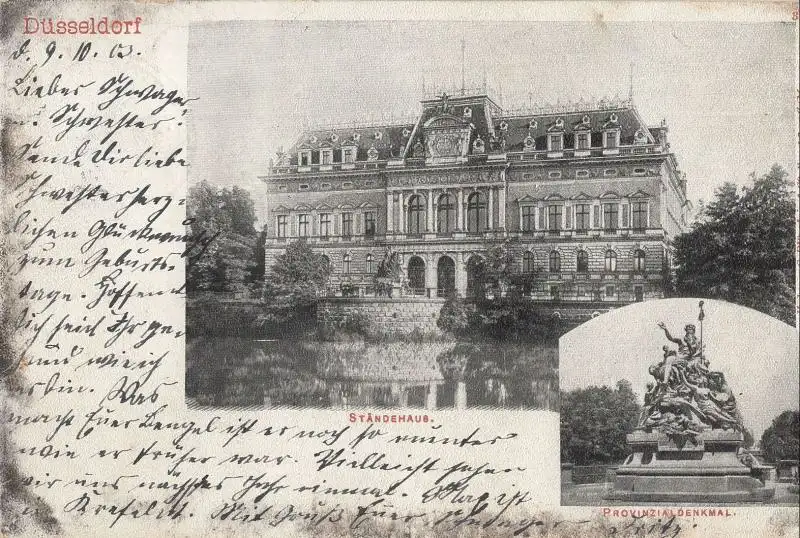 Düsseldorf
d. 9. 10. 03.
Lieber Schwager
u. Schwester!
Sende Dir liebe
Schwester herz-
lichen Glückwunsch
zum Geburts-
tage. Hoffend
Ihr ge-
sund wie ich
es bin. Was
macht Euer Bengel ist er noch so munter
wie er früher war. Vielleicht sehen
wir uns nächstes Jahr einmal. Max ist
in Krefeld. Mit Gruß Euer Schwager Fritz.
STÄNDEHAUS.
PROVINZIALDENKMAL.